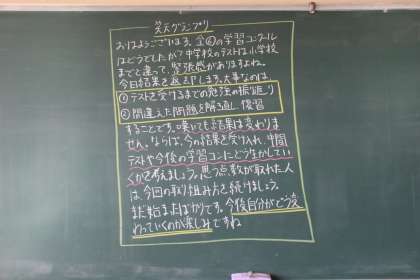 笑天グランプリ
おはようございます。全⑥の学習コンクール
はどうでしたか？中学校のテストは小学校
までと違って、緊張感がありますよね。
今日結果を返却します。大事なのは
①テストを受けるまでの勉強の振り返り
②間違えた問題を解き直し、復習
することです。嘆いても結果は変わりま
せん。ならば、今の結果を受け入れ、中間
テストや今後の学習コンにどう生かしてい
くかを考えましょう。思う点数が取れた人
は、今回の取り組み方を続けましょう。
まだ始まったばかりです。今後自分がどう変
わっていくのか楽しみですね